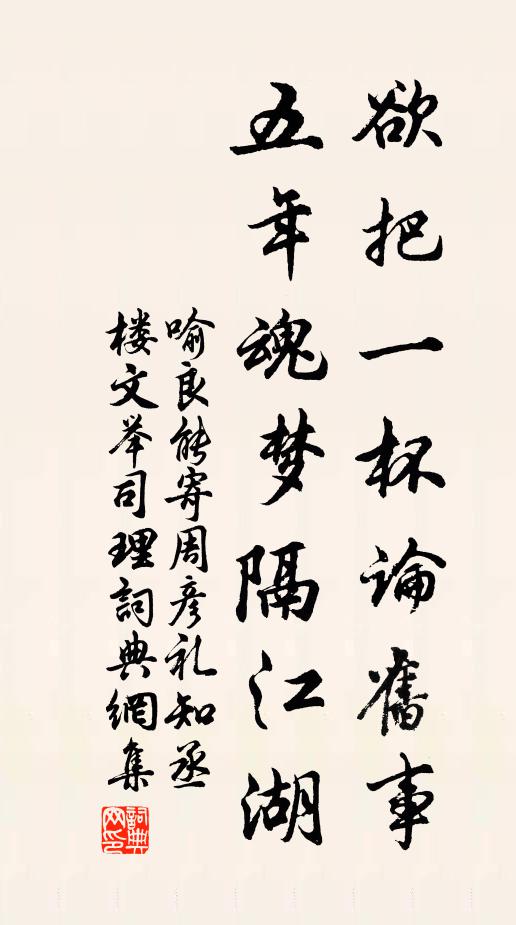 欲把一杯論舊事
五年魂梦隔江湖
喻良能寄周彦礼知丞
楼文举司理詞典網集
詞典
网印